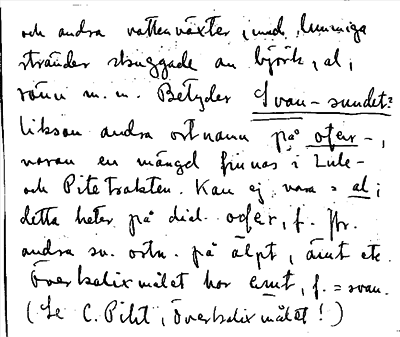 och andra vattenväxter, med lummiga
stränder skuggade av björk, al,
rönn m. m. Betyder Svan-sundet?
liksom andra ortnamn på
varav en mängd finnas i Lule-
och Pitetrakten. Kan ej vara = al;
detta heter på dial. f. Jfr.
andra sv. ortn. på älpt, etc.
Överkalixmålet har f. = svan.
(Se C. Pihl, Överkalixmålet!)